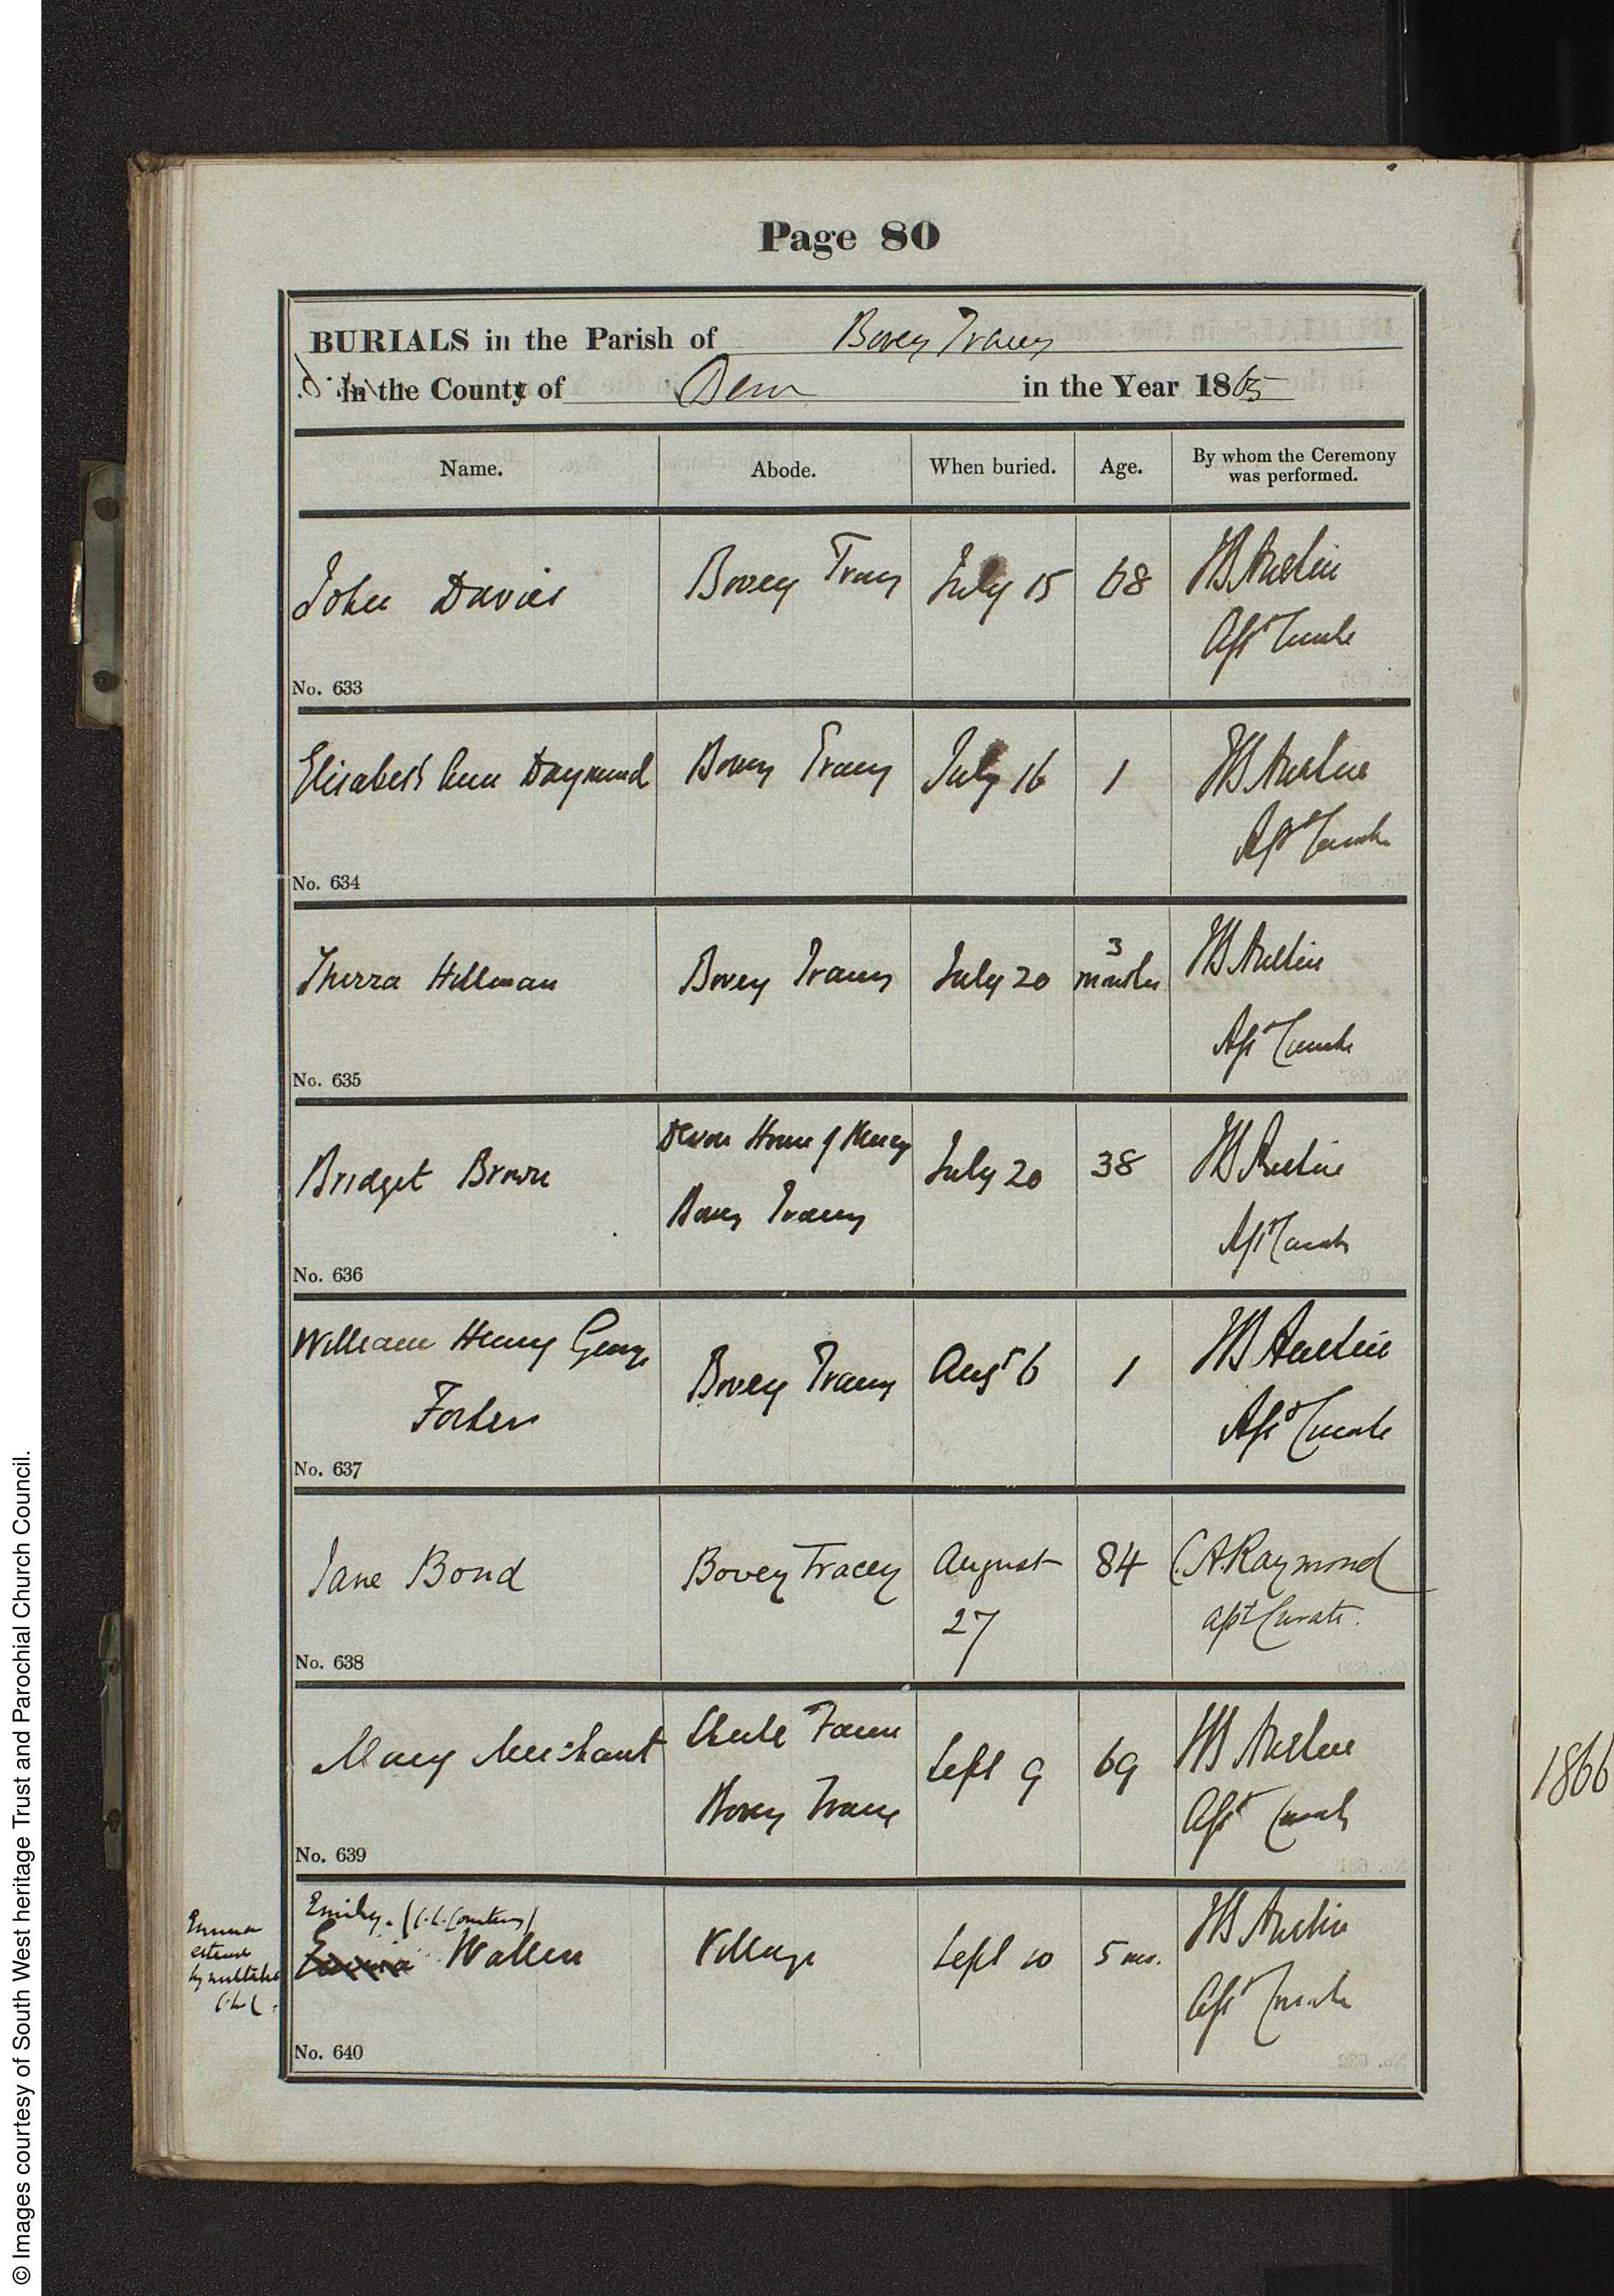 Page 80
BURIALS in the Parish of Bovey Tracey
In the County of Devon in the Year 1865
Name. Abode. When buried. Age. By whom the Ceremony was performed.
John Davies Bovey Tracey July 15 68 HB Austin
Asst Curate
No. 633
Elizabeth Ann Daymond Bovey Tracey July 16 1 HB Austin
Asst Curate
No. 634
Thirza Hillman Bovey Tracey July 20 3 months HB Austin
Asst Curate
No. 635
Bridget Brown Devon House of Mercy July 20 38 HB Austin
Bovey Tracey Asst Curate
No. 636
William Henry George Bovey Tracey Augst 6 1 HB Austin
Asst Curate
No. 637
Jane Bond Bovey Tracey August 84 C.A. Raymond
27 Asst Curate.
No. 638
Mary Merchant Farm Sept 9 69 HB Austin
Bovey Tracey Asst Curate
No. 639
Emily. (C.L. Courtenay)
Emma Village Sept 10 5 mo. HB Austin
Asst Curate
No. 640
Emma
entered
by mistake
C.L.C.
1866
© Images courtesy of South West heritage Trust and Parochial Church Council.